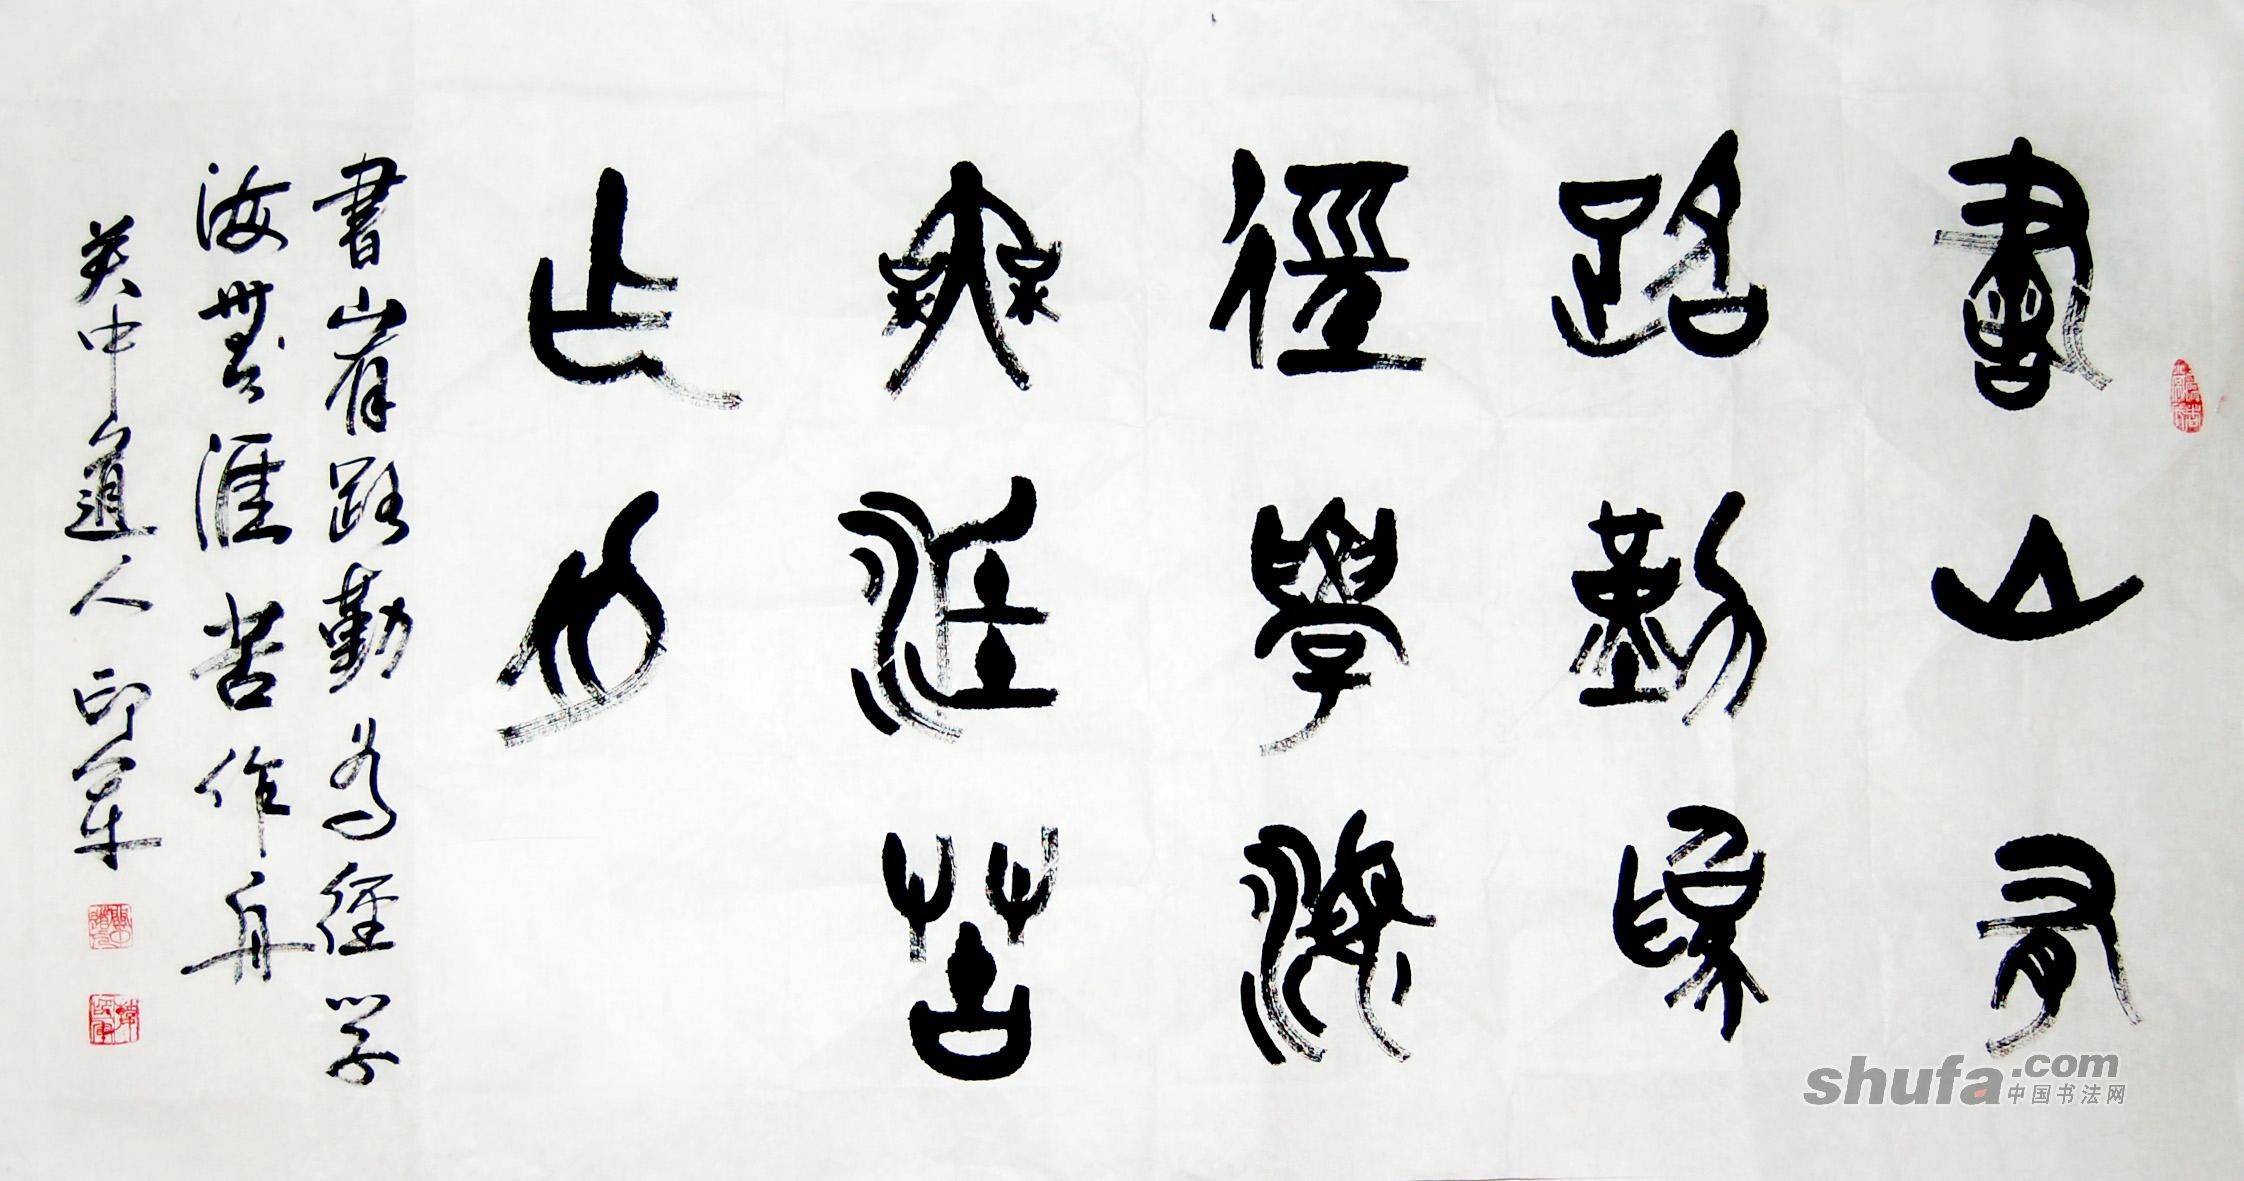 書山有
路勤為
徑學海
無涯苦
作舟
書山有路勤為徑學
海無涯苦作舟
关中道人印军
shufa.com
中国书法网